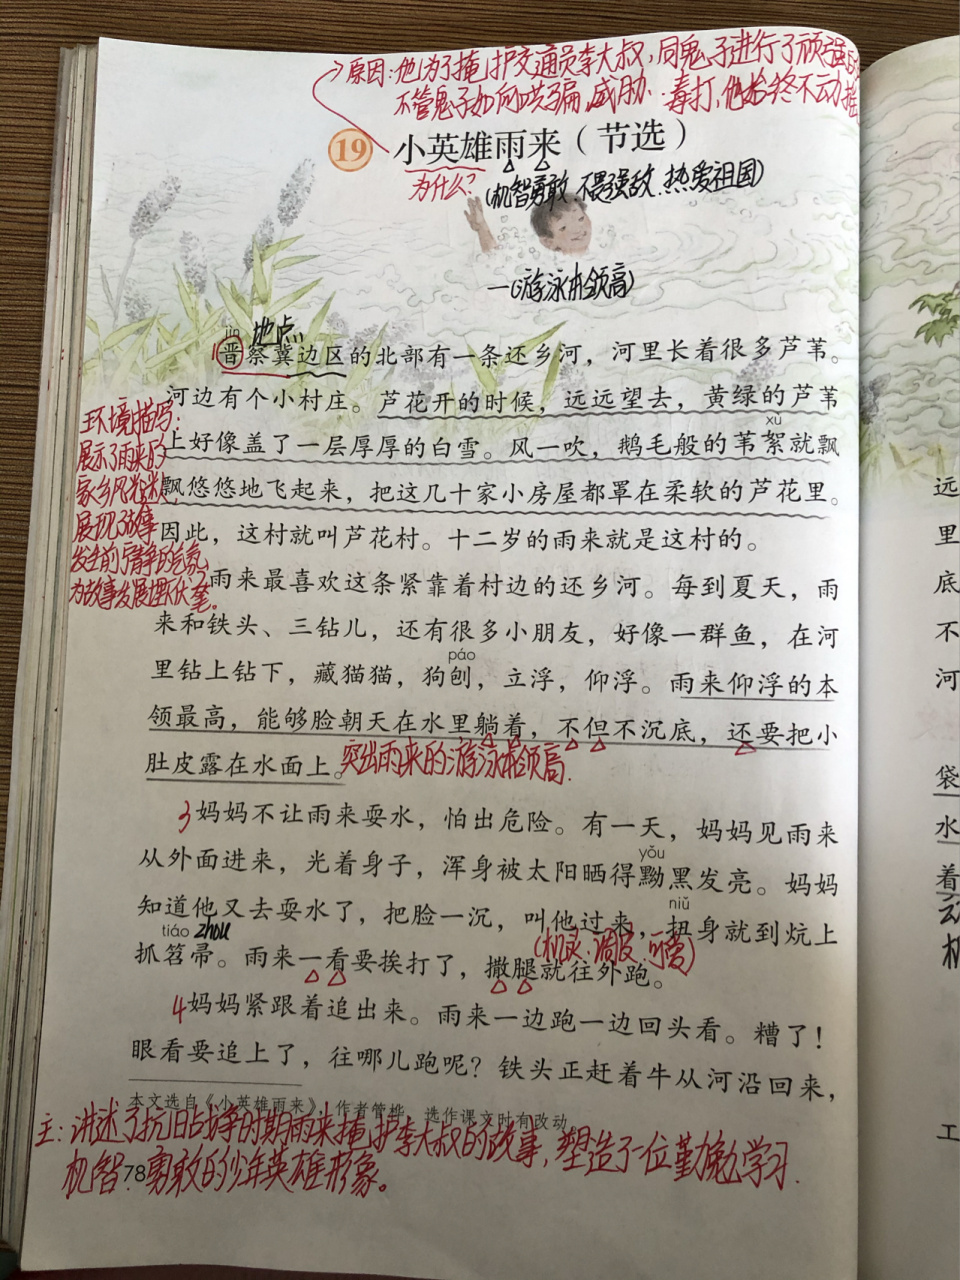 原因:他为了掩护交通员李大叔,同鬼子进行了顽强的
不管鬼子如何哄骗,威胁、毒打,他始终不动摇
19 小英雄雨来（节选）
为什么? (机智勇敢、不畏强敌、热爱祖国)
一(游泳本领高)
jìn 地点
1晋察冀边区的北部有一条还乡河，河里长着很多芦苇。
河边有个小村庄。芦花开的时候，远远望去，黄绿的芦苇
xù
上好像盖了一层厚厚的白雪。风一吹，鹅毛般的苇絮就飘
飘悠悠地飞起来，把这几十家小房屋都罩在柔软的芦花里。
因此，这村就叫芦花村。十二岁的雨来就是这村的。
环境描写:
展示了雨来的
家乡风光迷人,
展现了故事
发生前宁静的气氛,
为故事发展埋伏笔。
2雨来最喜欢这条紧靠着村边的还乡河。每到夏天，雨
来和铁头、三钻儿，还有很多小朋友，好像一群鱼，在河
páo
里钻上钻下，藏猫猫，狗刨，立浮，仰浮。雨来仰浮的本
领最高，能够脸朝天在水里躺着，不但不沉底，还要把小
肚皮露在水面上。突出雨来的游泳本领高.
3妈妈不让雨来耍水，怕出危险。有一天，妈妈见雨来
从外面进来，光着身子，浑身被太阳晒得黝黑发亮。妈妈
yǒu
知道他又去耍水了，把脸一沉，叫他过来，扭身就到炕上
niǔ
tiáo zhou (机灵、调皮、可爱)
抓笤帚。雨来一看要挨打了，撒腿就往外跑。
4妈妈紧跟着追出来。雨来一边跑一边回头看。糟了！
眼看要追上了，往哪儿跑呢？铁头正赶着牛从河沿回来，
本文选自《小英雄雨来》，作者管桦，选作课文时有改动。
主:讲述了抗日战争时期雨来掩护李大叔的故事,塑造了一位勤勉学习.
机智.勇敢的少年英雄形象。
78
远
里
底
不
河
袋
水
着
动
机
工